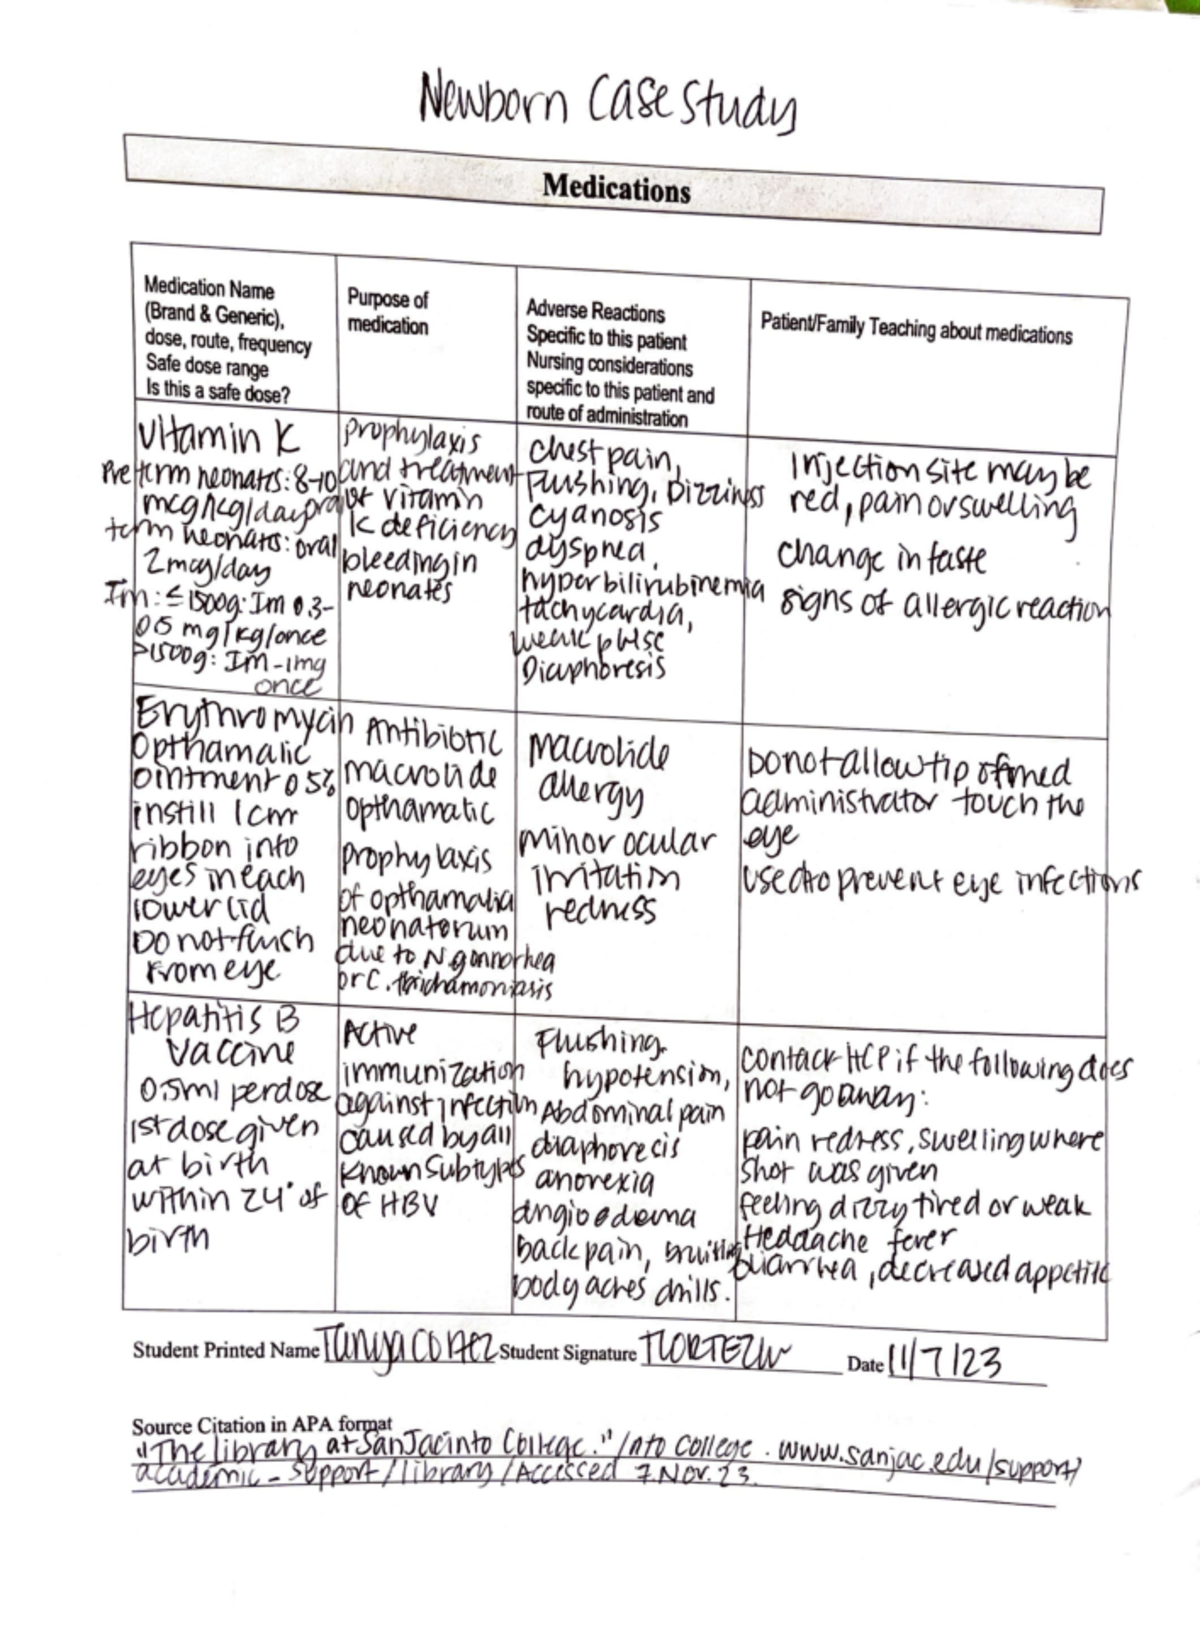 Newborn Case Study
Medications
Medication Name
(Brand & Generic),
dose, route, frequency
Safe dose range
Is this a safe dose?
Purpose of
medication
Adverse Reactions
Specific to this patient
Nursing considerations
specific to this patient and
route of administration
Patient/Family Teaching about medications
Vitamin K
Preterm neonates: 8-10
mcg/kg/day oral
term neonates: oral
2mcg/day
Im: ≤1500g: Im 0.3-
05 mg/kg/once
>1500g: Im-1mg
once
prophylaxis
and treatment
of vitamin
K deficiency
bleeding in
neonates
Chest pain,
Flushing, Dizziness
cyanosis
dyspnea,
hyperbilirubinemia
tachycardia,
weak pulse
Diaphoresis
Injection site may be
red, pain or swelling
change in taste
signs of allergic reaction
Erythromycin
Opthamalic
ointment 05%
instill 1cm
ribbon into
eyes in each
lower lid
Do not flush
From eye
Antibiotic
macrolide
opthamatic
prophylaxis
of opthamalia
neonatorum
due to N.gonnorhea
or C.
Macrolide
allergy
minor ocular
irritation
redness
Do not allow tip of med
administrator touch the
eye
used to prevent eye infections
Hepatitis B
Vaccine
0.5ml per dose
1st dose given
at birth
within 24° of
birth
Active
immunization
against infection
caused by all
known subtypes
of HBV
Flushing.
hypotension,
Abdominal pain
diaphoresis
anorexia
angioedema
back pain, bruising
body aches chills.
contact HCP if the following does
not go away:
pain redness, swelling where
shot was given
feeling dizzy tired or weak
Headache fever
Diarrhea, decreased appetite
Student Printed Name Tanya Cortez Student Signature TCORTEZ Date 11/7/23
Source Citation in APA format
"The library at San Jacinto College." Into College. www.sanjac.edu/support/
academic-support/library/Accessed 7.Nov.23.